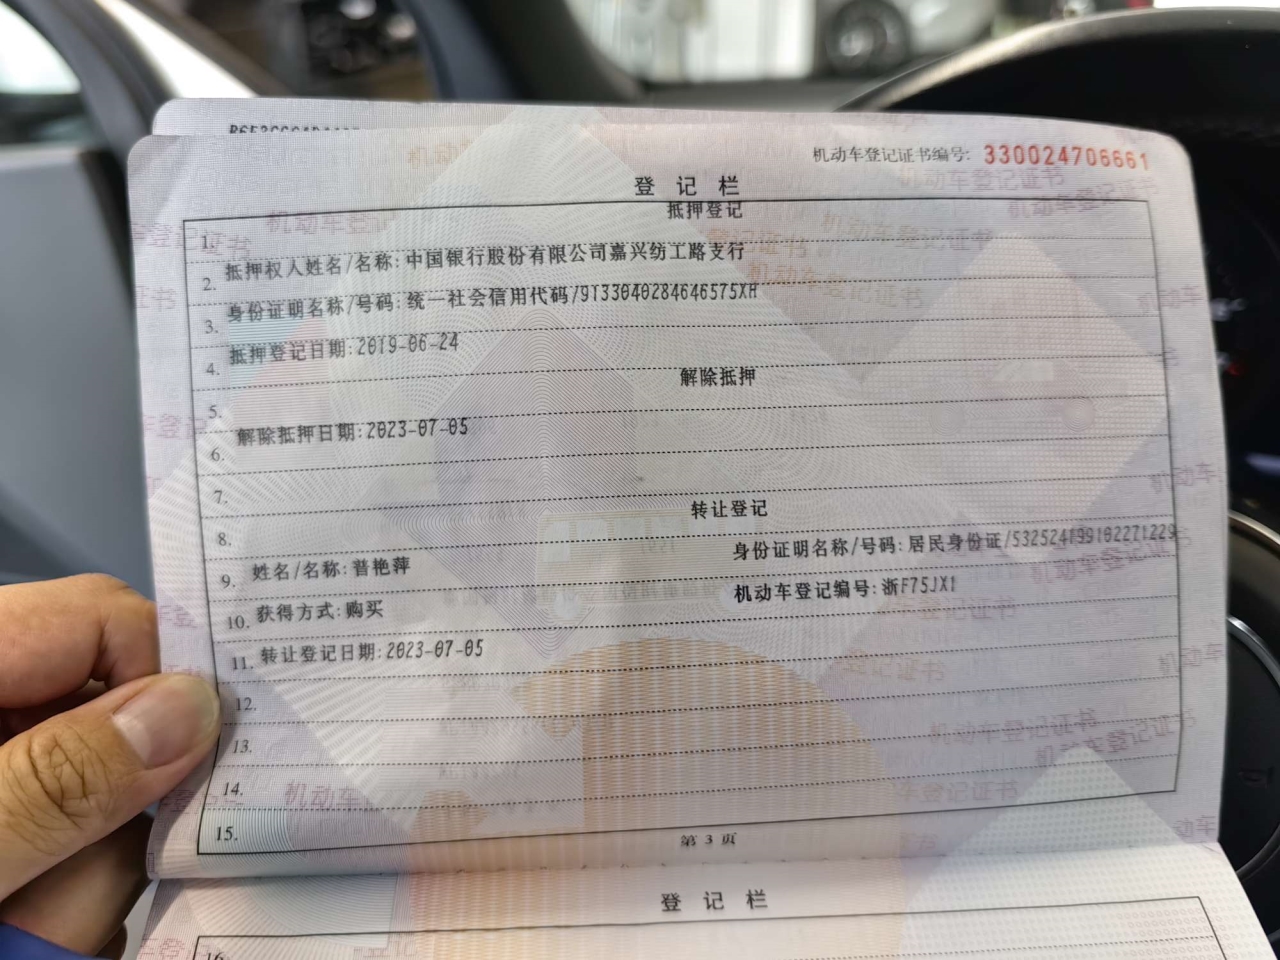 机动车登记证书编号: 330024706661
登 记 栏
1. 抵押登记
2. 抵押权人姓名/名称: 中国银行股份有限公司嘉兴纺工路支行
3. 身份证明名称/号码: 统一社会信用代码/91330402846465​75XH
4. 抵押登记日期: 2019-06-24
5. 解除抵押
6. 解除抵押日期: 2023-07-05
7.
8. 转让登记
9. 姓名/名称: 普艳萍 身份证明名称/号码: 居民身份证/532524199102271229
10. 获得方式: 购买 机动车登记编号: 浙F75JX1
11. 转让登记日期: 2023-07-05
12.
13.
14.
15.
第 3 页
登 记 栏
16.